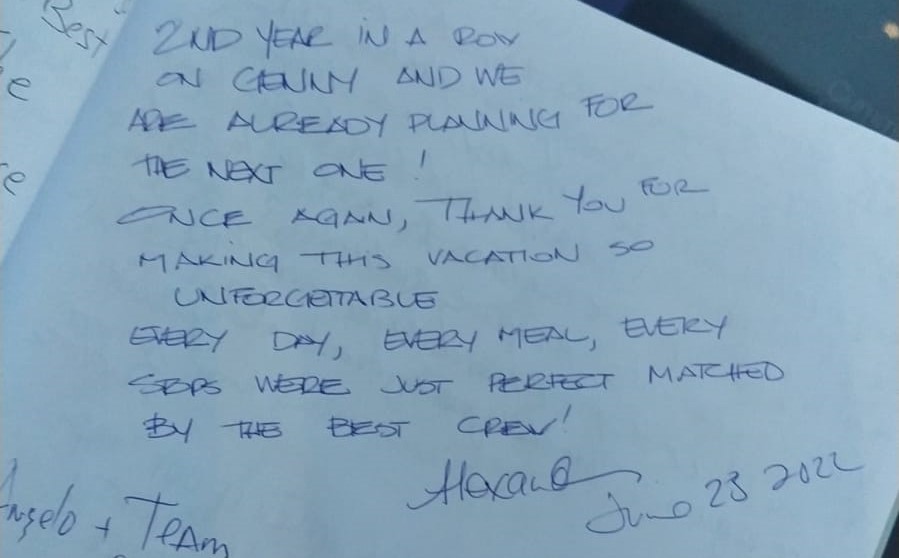 Best
e
e
2ND YEAR IN A ROW
ON GENNY AND WE
ARE ALREADY PLANNING FOR
THE NEXT ONE !
ONCE AGAIN, THANK YOU FOR
MAKING THIS VACATION SO
UNFORGETTABLE
EVERY DAY, EVERY MEAL, EVERY
STOPS WERE JUST PERFECT MATCHED
BY THE BEST CREW!
June 23 2022
Angelo + TEAM